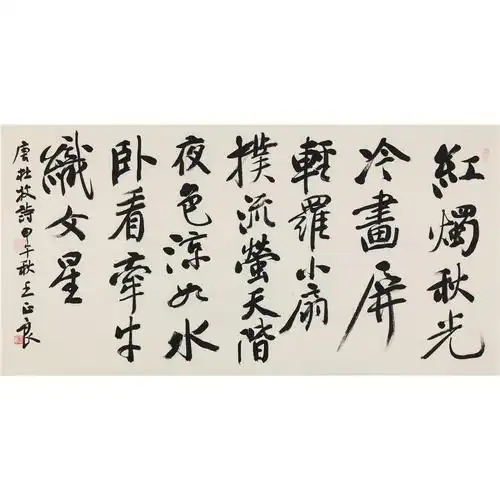 紅燭秋光
冷畫屏
輕羅小扇
撲流螢天階
夜色涼如水
卧看牽牛
織女星
唐杜牧詩甲午秋王正良